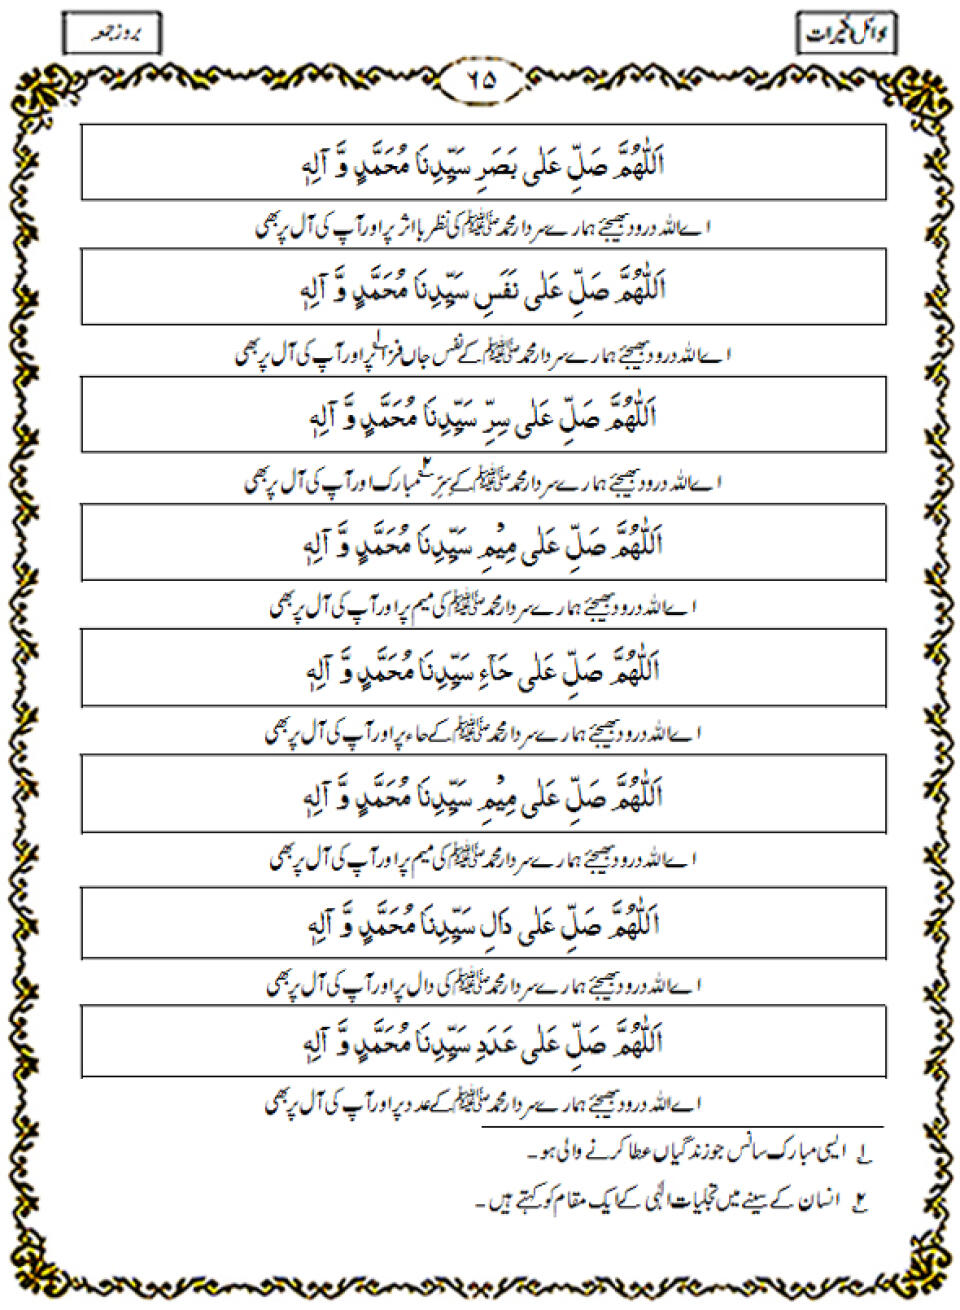 اوائل الخیرات
بروز جمعہ
٦٥
اَللّٰهُمَّ صَلِّ عَلٰى بَصَرِ سَيِّدِنَا مُحَمَّدٍ وَّ آلِهٖ
اے اللہ درود بھیجئے ہمارے سردار محمد ﷺ کی نظر با اثر پر اور آپ کی آل پر بھی
اَللّٰهُمَّ صَلِّ عَلٰى نَفَسِ سَيِّدِنَا مُحَمَّدٍ وَّ آلِهٖ
اے اللہ درود بھیجئے ہمارے سردار محمد ﷺ کے نفس جاں فزا ۱؎ پر اور آپ کی آل پر بھی
اَللّٰهُمَّ صَلِّ عَلٰى سِرِّ سَيِّدِنَا مُحَمَّدٍ وَّ آلِهٖ
اے اللہ درود بھیجئے ہمارے سردار محمد ﷺ کے سِرّ ۲؎ مبارک اور آپ کی آل پر بھی
اَللّٰهُمَّ صَلِّ عَلٰى مِيْمِ سَيِّدِنَا مُحَمَّدٍ وَّ آلِهٖ
اے اللہ درود بھیجئے ہمارے سردار محمد ﷺ کی میم پر اور آپ کی آل پر بھی
اَللّٰهُمَّ صَلِّ عَلٰى حَآءِ سَيِّدِنَا مُحَمَّدٍ وَّ آلِهٖ
اے اللہ درود بھیجئے ہمارے سردار محمد ﷺ کے حاء پر اور آپ کی آل پر بھی
اَللّٰهُمَّ صَلِّ عَلٰى مِيْمِ سَيِّدِنَا مُحَمَّدٍ وَّ آلِهٖ
اے اللہ درود بھیجئے ہمارے سردار محمد ﷺ کی میم پر اور آپ کی آل پر بھی
اَللّٰهُمَّ صَلِّ عَلٰى دَالِ سَيِّدِنَا مُحَمَّدٍ وَّ آلِهٖ
اے اللہ درود بھیجئے ہمارے سردار محمد ﷺ کی دال پر اور آپ کی آل پر بھی
اَللّٰهُمَّ صَلِّ عَلٰى عَدَدِ سَيِّدِنَا مُحَمَّدٍ وَّ آلِهٖ
اے اللہ درود بھیجئے ہمارے سردار محمد ﷺ کے عدد پر اور آپ کی آل پر بھی
۱؎ ایسی مبارک سانس جو زندگیاں عطا کرنے والی ہو۔
۲؎ انسان کے سینے میں تجلیات الٰہی کے ایک مقام کو کہتے ہیں۔